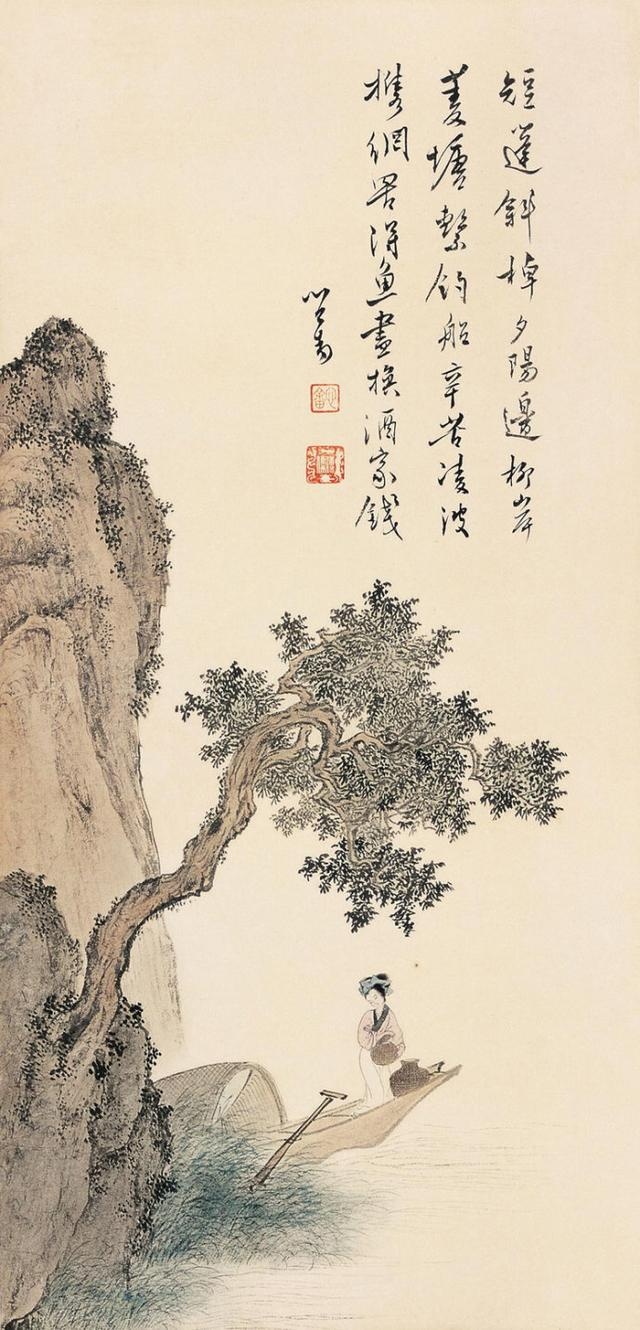 短蓬斜棹夕陽邊柳岸
菱塘繫釣船辛苦凌波
攜網罟得魚盡換酒家錢
心畬